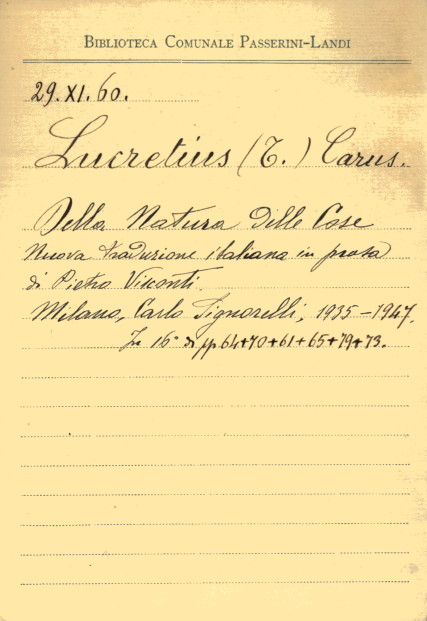 BIBLIOTECA COMUNALE PASSERINI-LANDI
29.XI.60.
Lucretius (T.) Carus.
Della Natura Delle Cose
Nuova traduzione italiana in prosa
di Pietro Visconti.
Milano, Carlo Signorelli, 1935-1947.
In 16° di pp. 64+70+61+65+79+73.